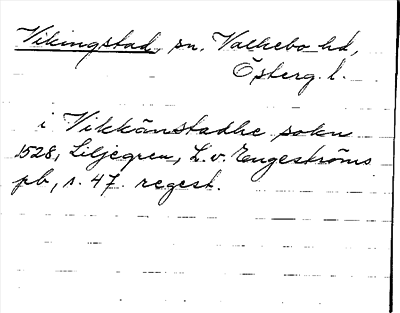 Vikingstad sn. Valkebo hd,
Österg. l.
i Vikkänstadhe sokn
1528, Liljegren, L. v. Engeströms
pb, s. 47. regest.